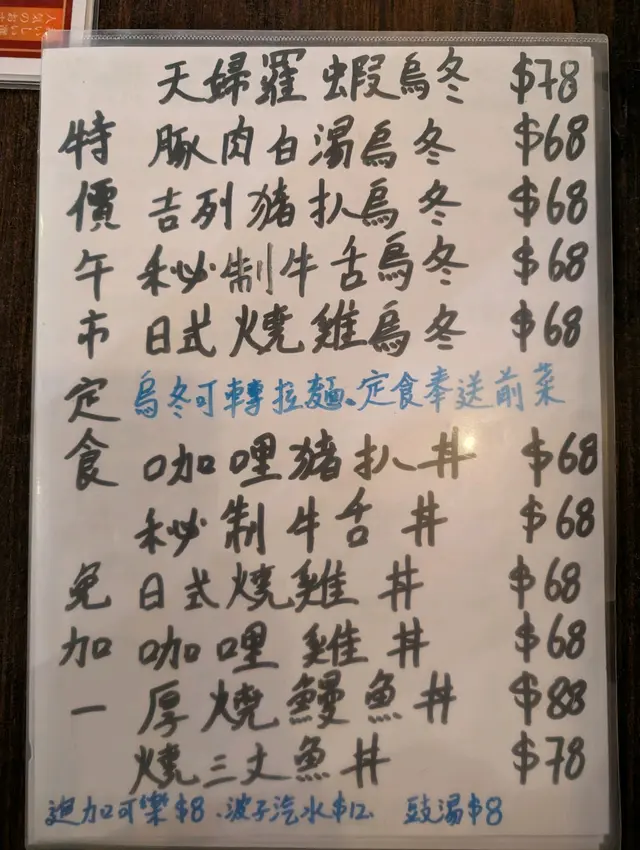 特價午市定食
免加一
天婦羅蝦烏冬 $78
豚肉白湯烏冬 $68
吉列豬扒烏冬 $68
秘制牛舌烏冬 $68
日式燒雞烏冬 $68
烏冬可轉拉麵。定食奉送前菜
咖哩豬扒丼 $68
秘制牛舌丼 $68
日式燒雞丼 $68
咖哩雞丼 $68
厚燒鰻魚丼 $88
燒三文魚丼 $78
加可樂$8、波子汽水$12 豉湯$8